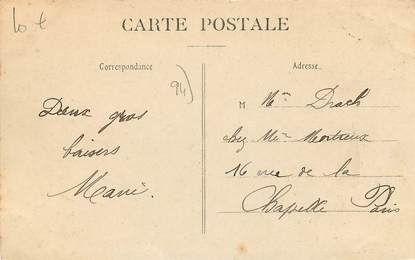 CARTE POSTALE
Correspondance
Adresse.
94)
Deux gros
baisers
M Mr Drach
chez Mr
16 rue de la
Chapelle Paris